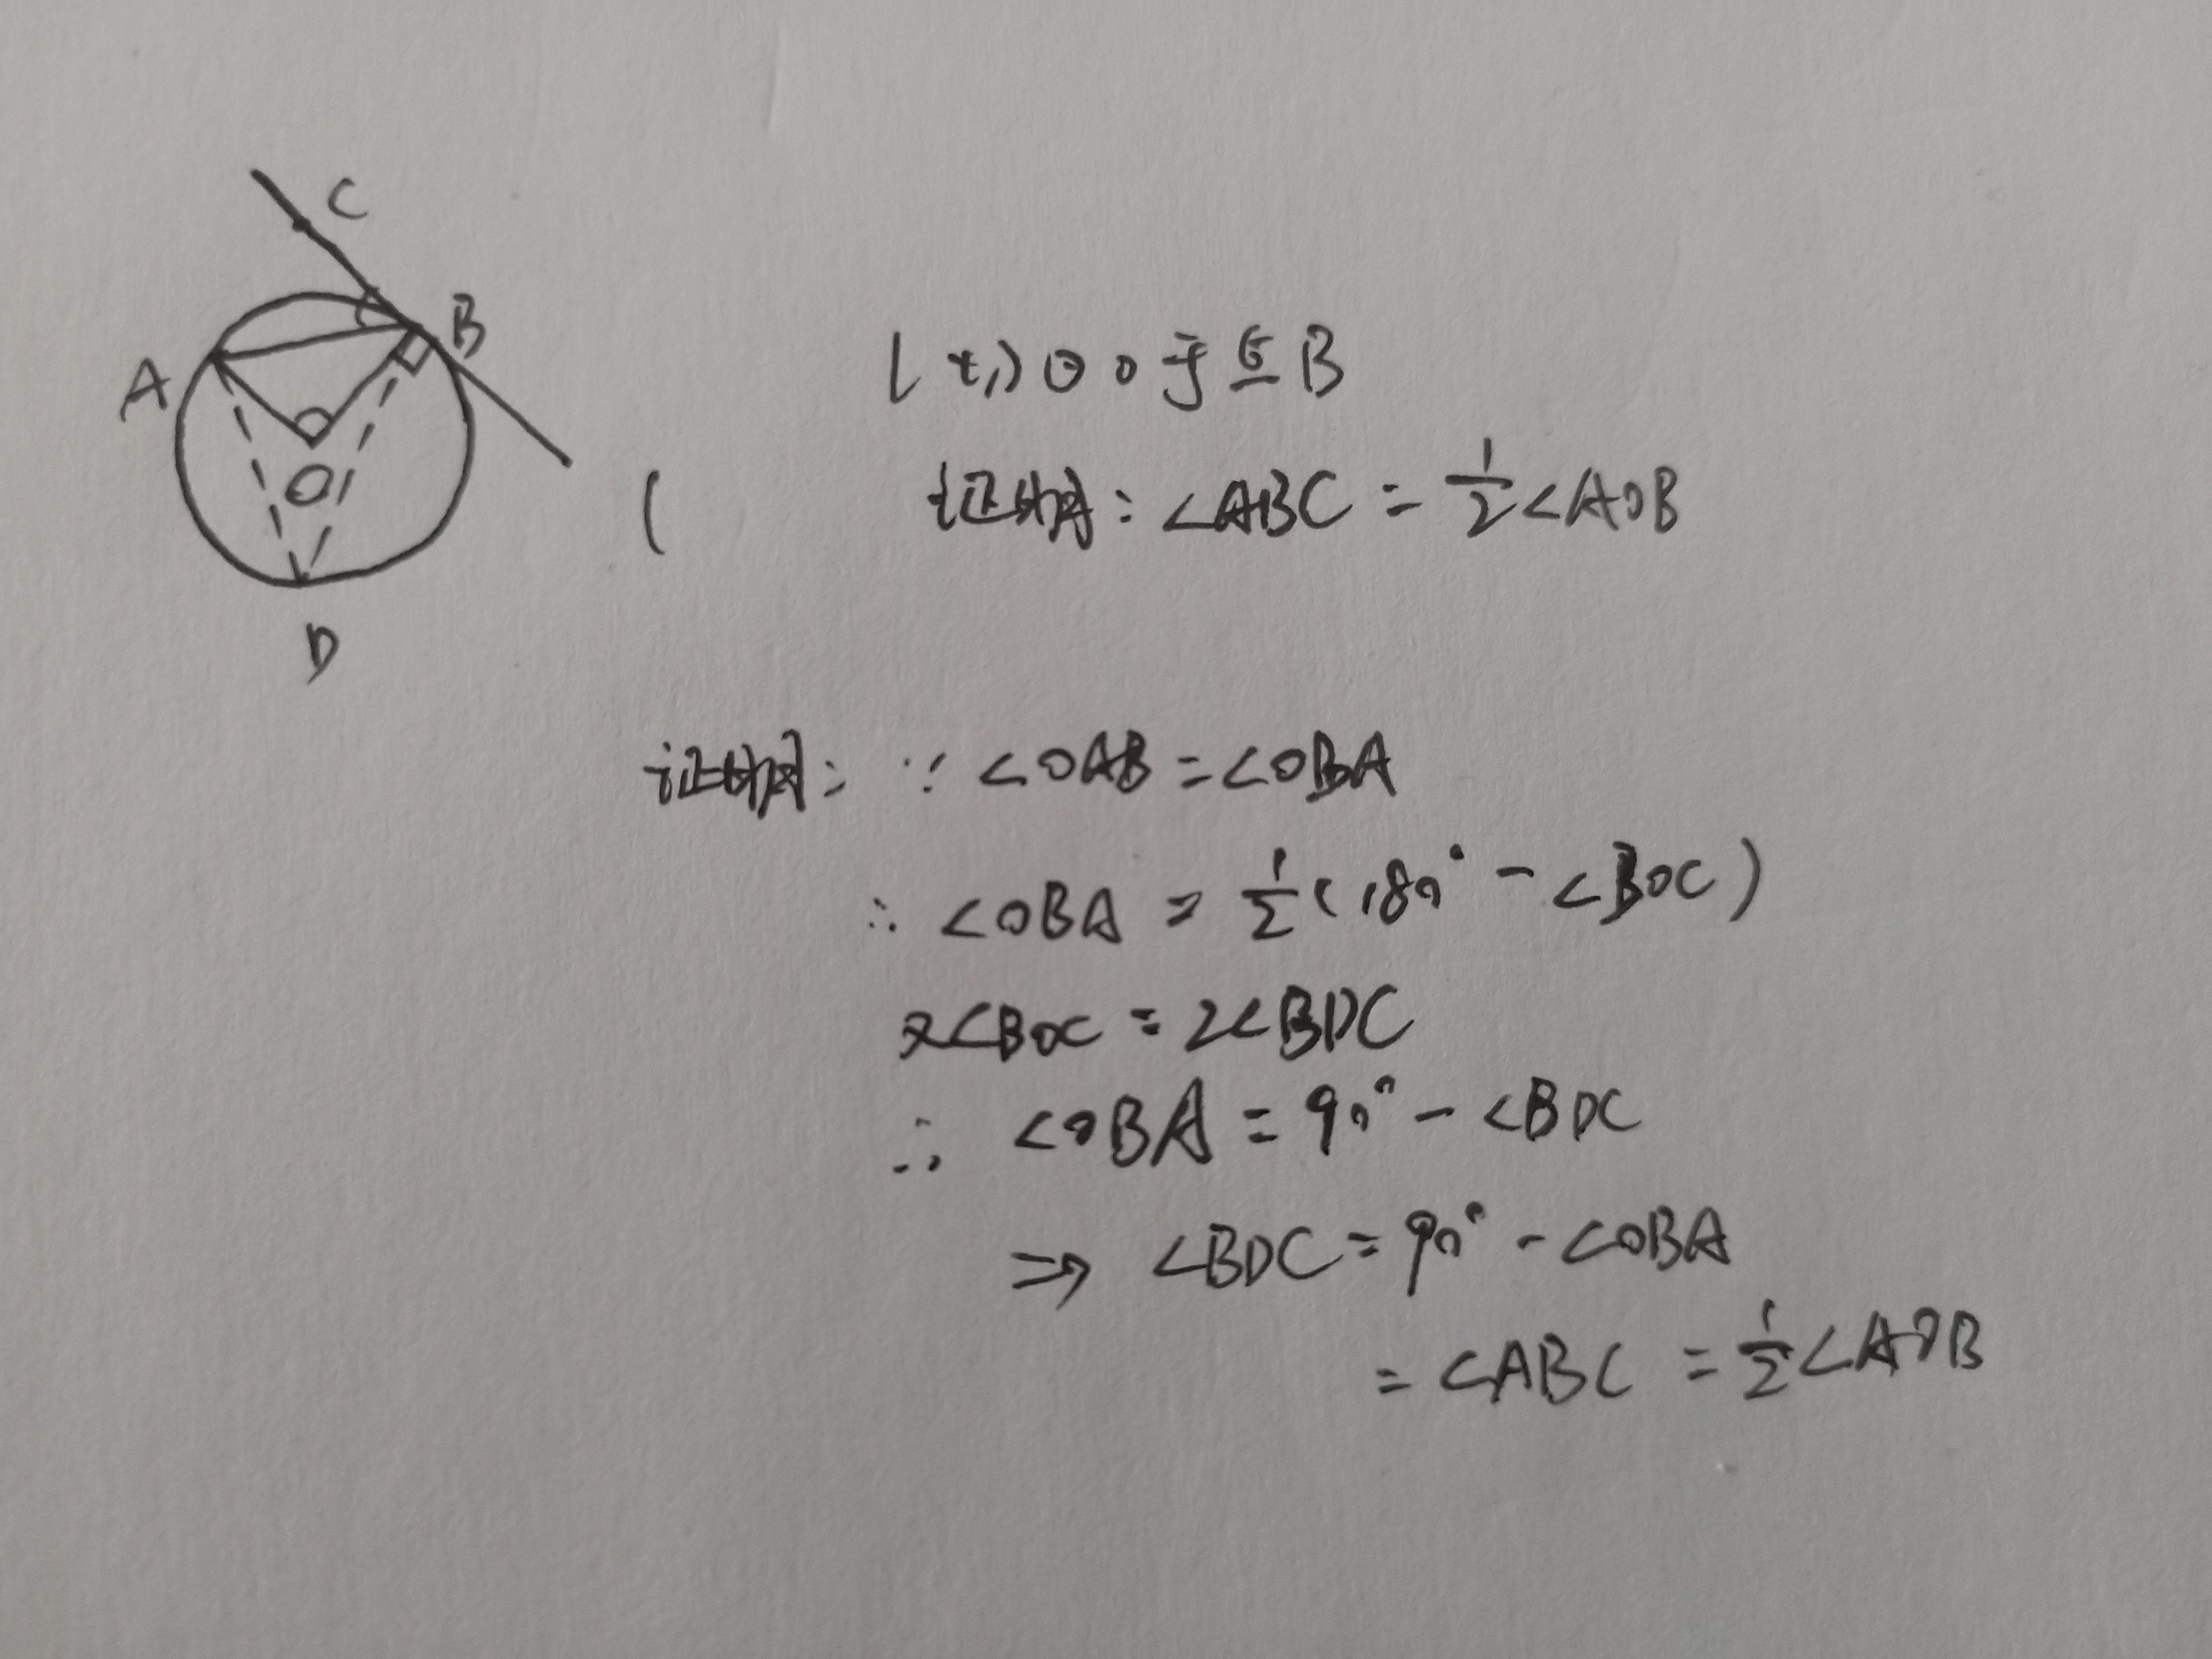 C
B
A
O
D
l
l 切⊙O于点B
证明：∠ABC = 1/2∠AOB
证明：∵ ∠OAB = ∠OBA
∴ ∠OBA = 1/2(180° - ∠BOC)
又∠BOC = 2∠BDC
∴ ∠OBA = 90° - ∠BDC
⇒ ∠BDC = 90° - ∠OBA
= ∠ABC = 1/2∠AOB